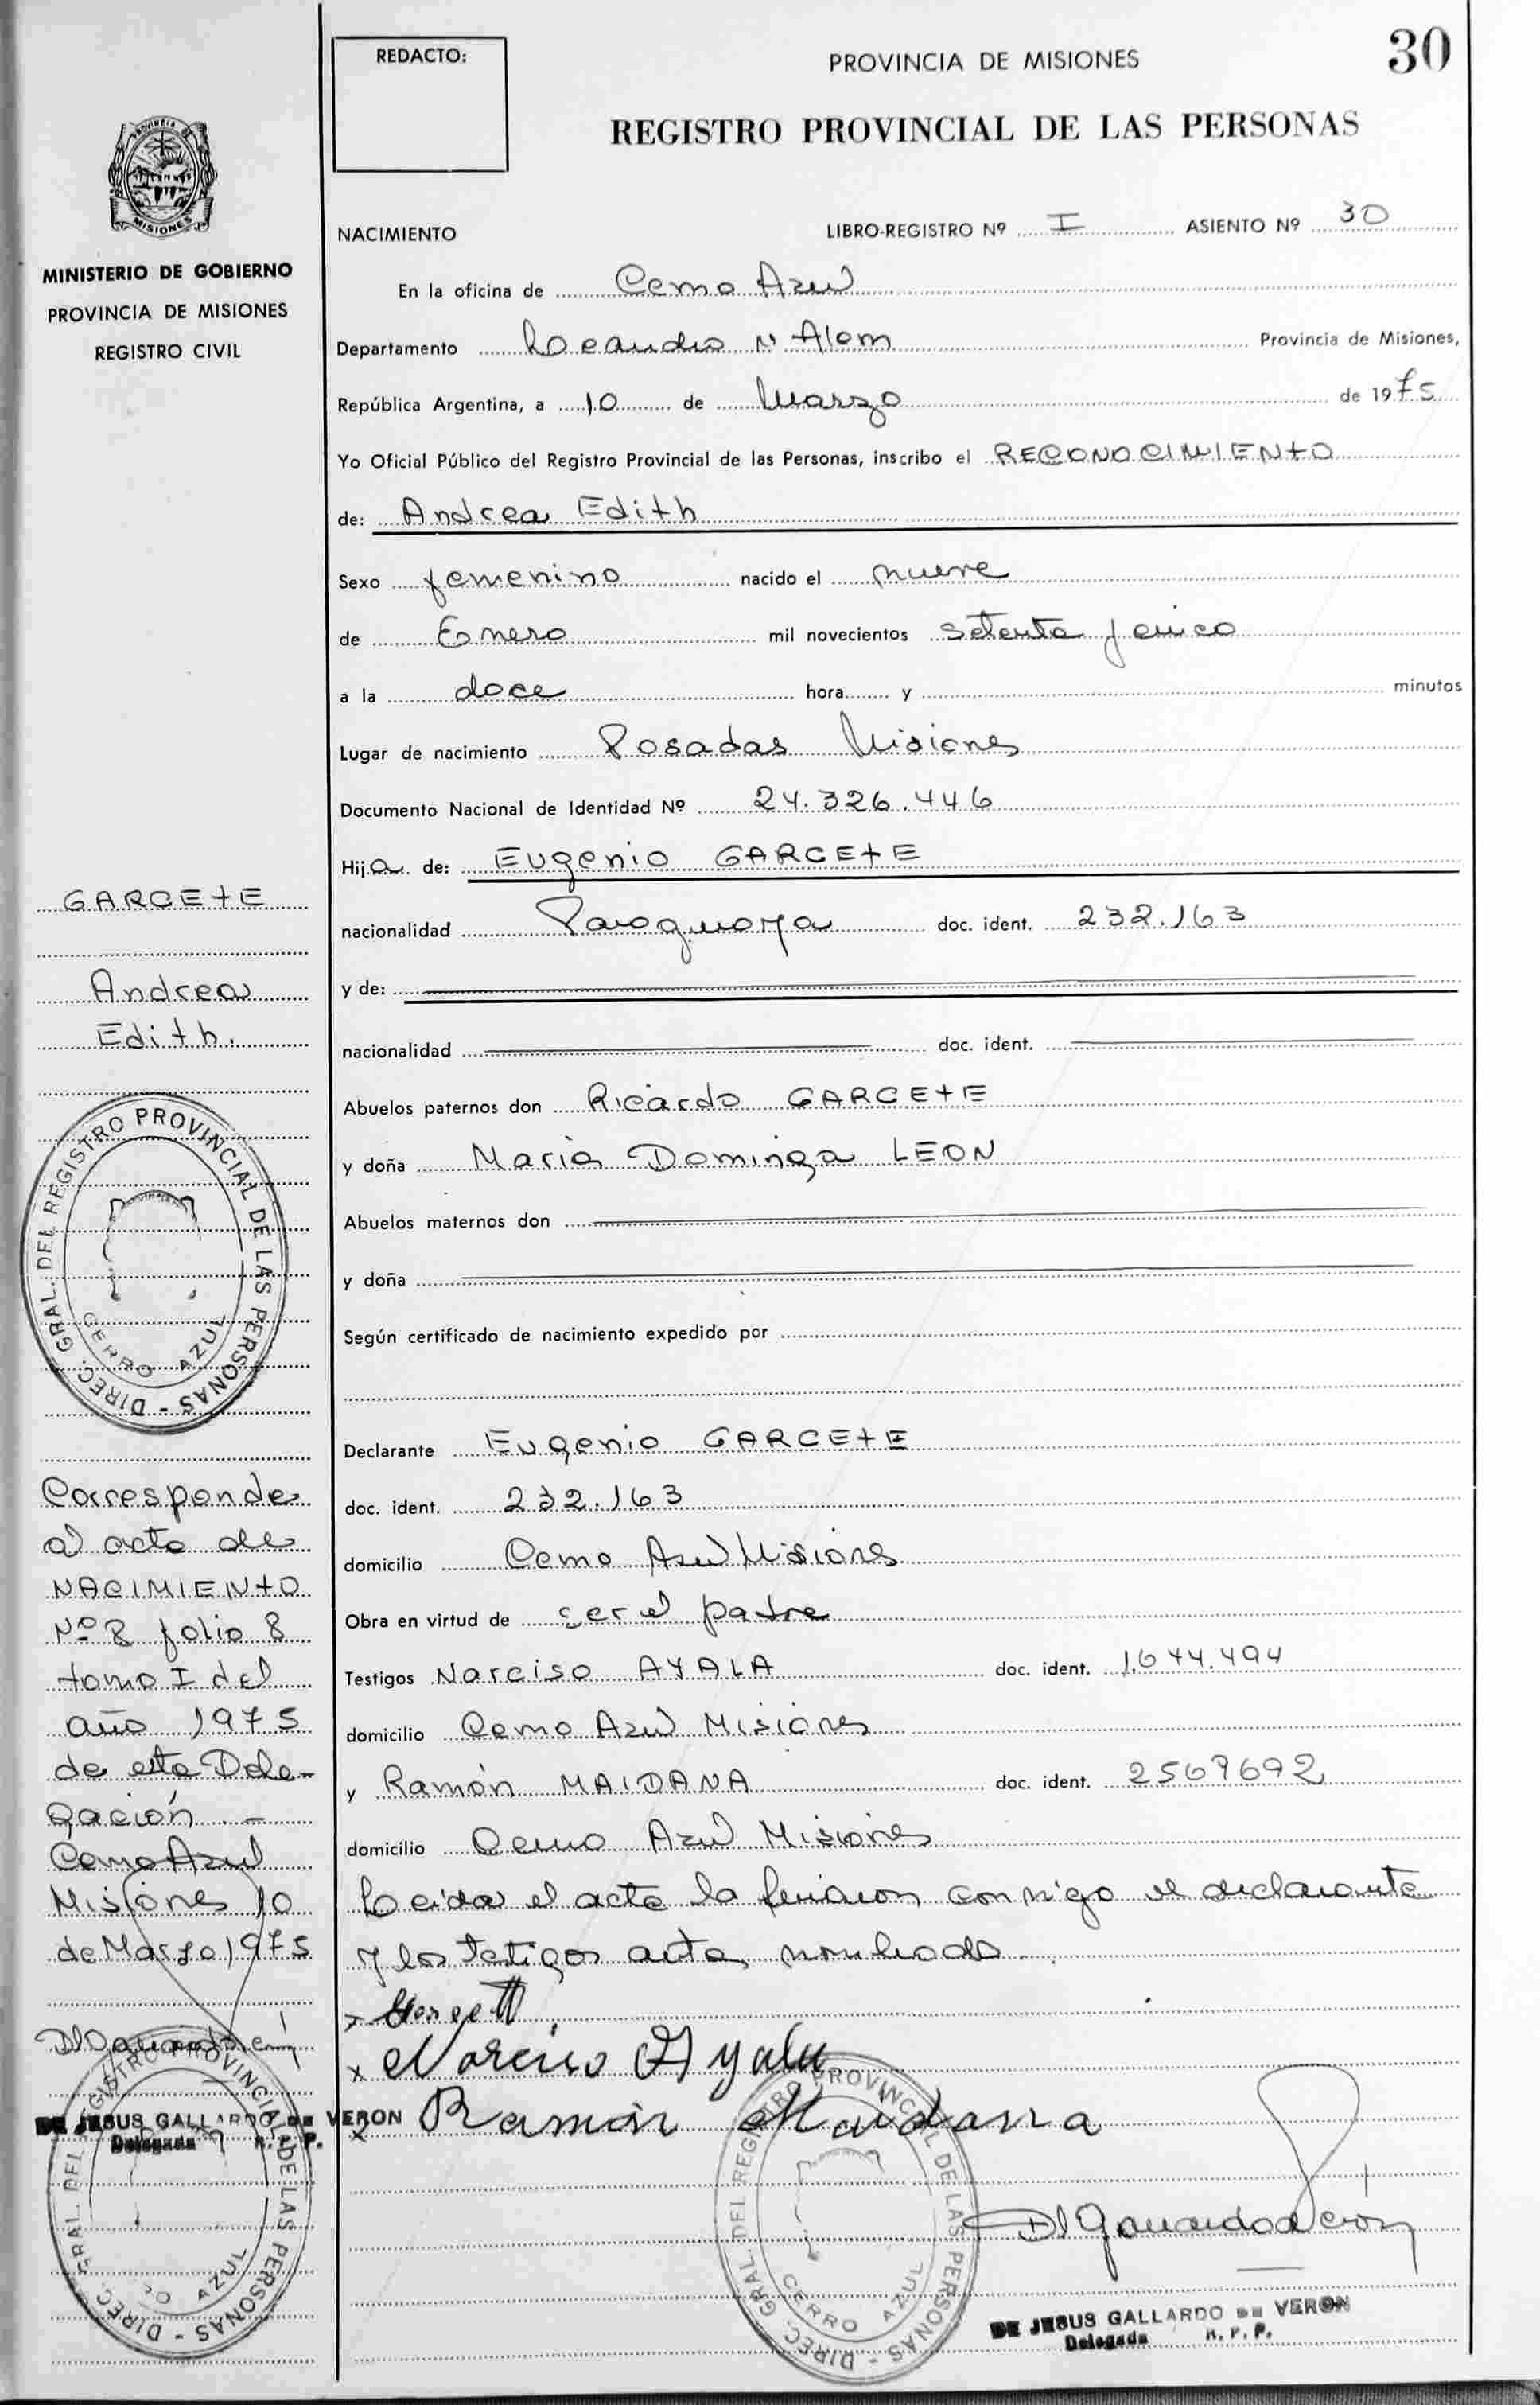 30
REDACTO:
PROVINCIA DE MISIONES
REGISTRO PROVINCIAL DE LAS PERSONAS
PROVINCIA DE
MISIONES
MINISTERIO DE GOBIERNO
PROVINCIA DE MISIONES
REGISTRO CIVIL
NACIMIENTO LIBRO-REGISTRO Nº I ASIENTO Nº 30
En la oficina de Cerro Azul
Departamento Leandro N Alem Provincia de Misiones,
República Argentina, a 10 de Marzo de 1975
Yo Oficial Público del Registro Provincial de las Personas, inscribo el RECONOCIMIENTO
de: Andrea Edith
Sexo femenino nacido el nueve
de Enero mil novecientos setenta y cinco
a la doce hora y minutos
Lugar de nacimiento Posadas Misiones
Documento Nacional de Identidad Nº 24.326.446
Hija de: Eugenio GARCETE
nacionalidad Paraguaya doc. ident. 232.163
y de:
nacionalidad doc. ident.
Abuelos paternos don Ricardo GARCETE
y doña Maria Dominga LEON
Abuelos maternos don
y doña
Según certificado de nacimiento expedido por
Declarante Eugenio GARCETE
doc. ident. 232.163
domicilio Cerro Azul Misiones
Obra en virtud de ser el padre
Testigos Narciso AYALA doc. ident. 1.644.494
domicilio Cerro Azul Misiones
y Ramón MAIDANA doc. ident. 2569692
domicilio Cerro Azul Misiones
Leida el acta la firmaron conmigo el declarante
y los testigos antes nombrado.
x
x Narciso Ayala
x Ramón Maidana
DE JESUS GALLARDO DE VERON
Delegada R. P. P.
GARCETE
Andrea
Edith.
DIREC. GRAL. DEL REGISTRO PROVINCIAL DE LAS PERSONAS -
CERRO AZUL
Corresponde
al acta de
NACIMIENTO
Nº 8 folio 8
tomo I del
año 1975
de esta Dele-
gación. -
Cerro Azul
Misiones 10
de Marzo 1975
DE JESUS GALLARDO DE VERON
Delegada R. P. P.
DIREC. GRAL. DEL REGISTRO PROVINCIAL DE LAS PERSONAS -
CERRO AZUL
DIREC. GRAL. DEL REGISTRO PROVINCIAL DE LAS PERSONAS -
CERRO AZUL